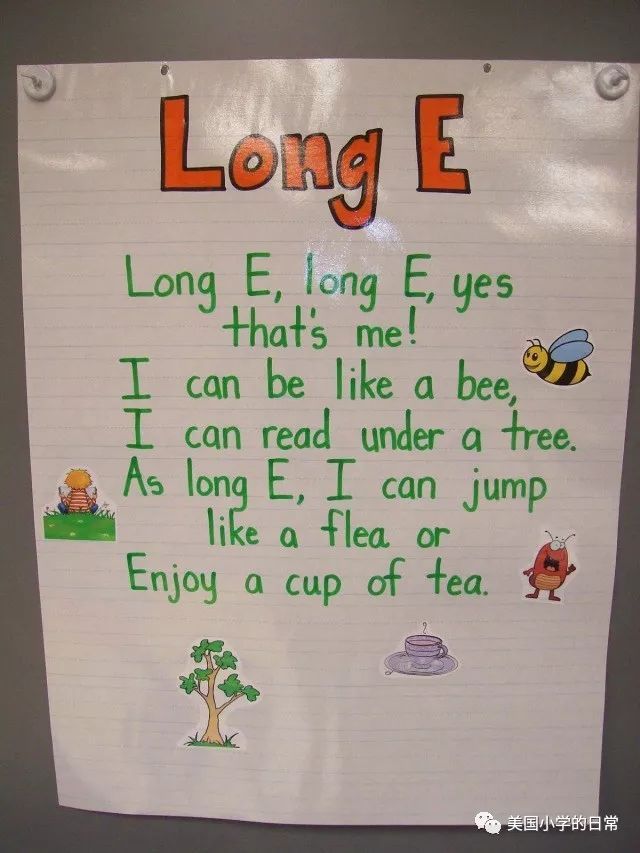 Long E
Long E, long E, yes
that's me!
I can be like a bee,
I can read under a tree.
As long E, I can jump
like a flea or
Enjoy a cup of tea.
美国小学的日常